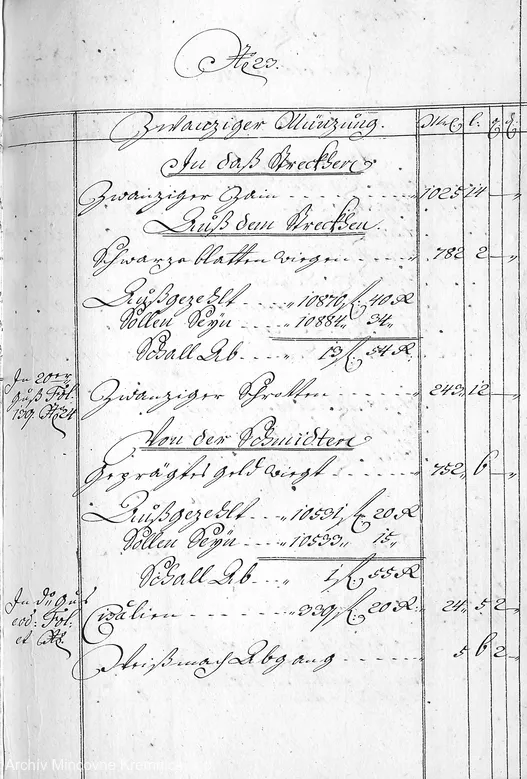 No 23.
Zwanziger Münzung. Mk l. q d
In daß Streckher
Zwanziger Zain 1025 14 —
Auß dem Streckhen.
Schwarze blatten wiegen 782 2 —
Außgezehlt 10870 f. 40 K
Sollen Seyn 10884 34
Schall Ab 13 f. 54 K.
In 20er
Guß Fol:
139 No 24
Zwanziger Schrotten 243 12 —
Von der Schmidten
Geprägtes Geld wiegt 752 6 —
Außgezehlt 10531 f. 20 K
Sollen Seyn 10533 15
Schall Ab 1 f. 55 K
In dº Guß
eod: Fol:
et No.
Cisalien 339 f. 20 K. 24 5 2
Weißmach Abgang 5 6 2
Archiv Mincovne Kremnica